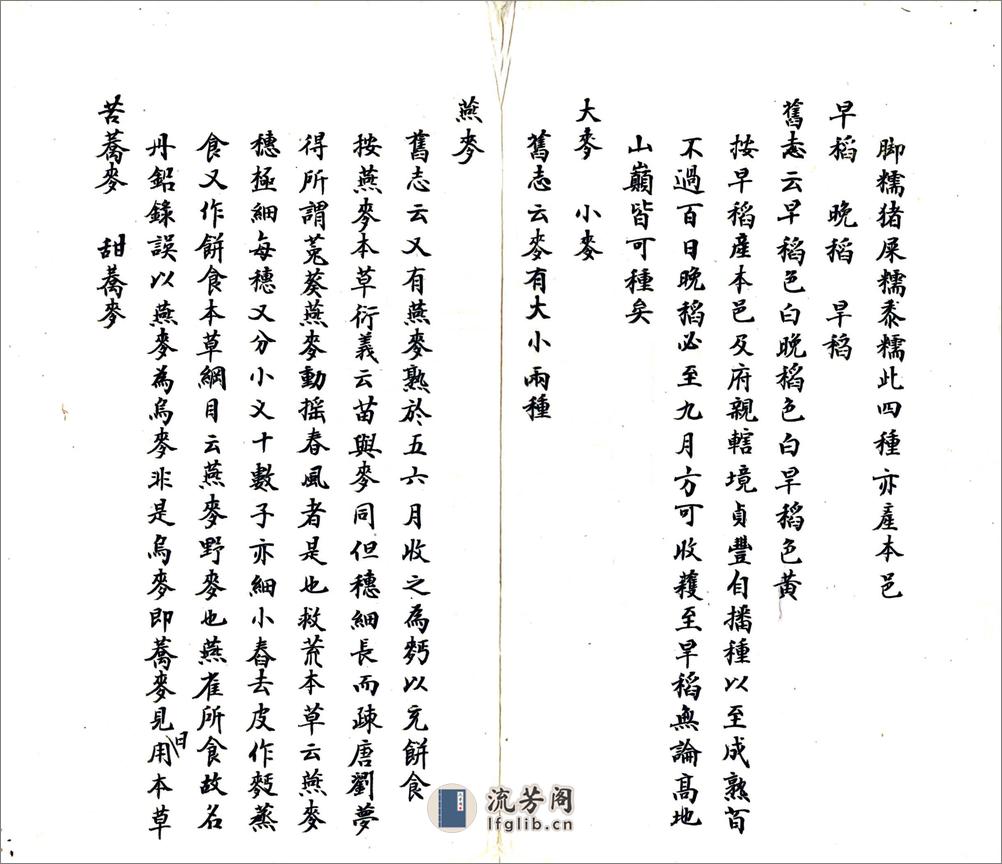 脚糯猪屎糯黍糯此四種亦產本邑
早稻　晚稻　旱稻
舊志云早稻色白晚稻色白旱稻色黃
按早稻產本邑及府親轄境貞豐自播種以至成熟苜
不過百日晚稻必至九月方可收穫至旱稻無論高地
山巔皆可種矣
大麥　小麥
舊志云麥有大小兩種
燕麥
舊志云又有燕麥熟於五六月收之為麪以充餅食
按燕麥本草衍義云苗與麥同但穗細長而疎唐劉夢
得所謂菟葵燕麥動摇春風者是也救荒本草云燕麥
穗極細每穗又分小乂十數子亦細小舂去皮作麪蒸
食又作餅食本草綱目云燕麥野麥也燕雀所食故名
丹鉛錄誤以燕麥為烏麥非是烏麥即蕎麥見用日本草
苦蕎麥　甜蕎麥
流芳阁
lfglib.cn